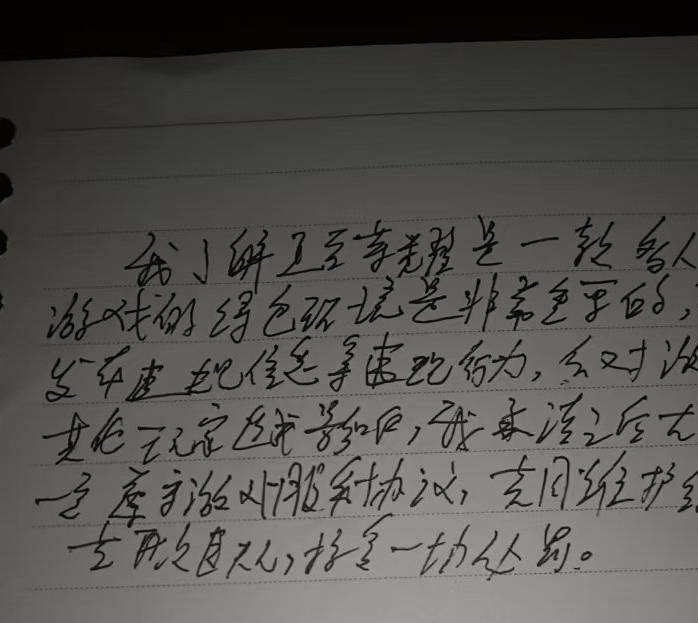 我了解王者荣耀是一款多人
游戏的绿色环境是非常重要的，
发布违规信息等违规行为，会对游
其他玩家造成影响，我承诺之后在
一定遵守游戏服务协议，共同维护绿
若再次违规，接受一切处罚。